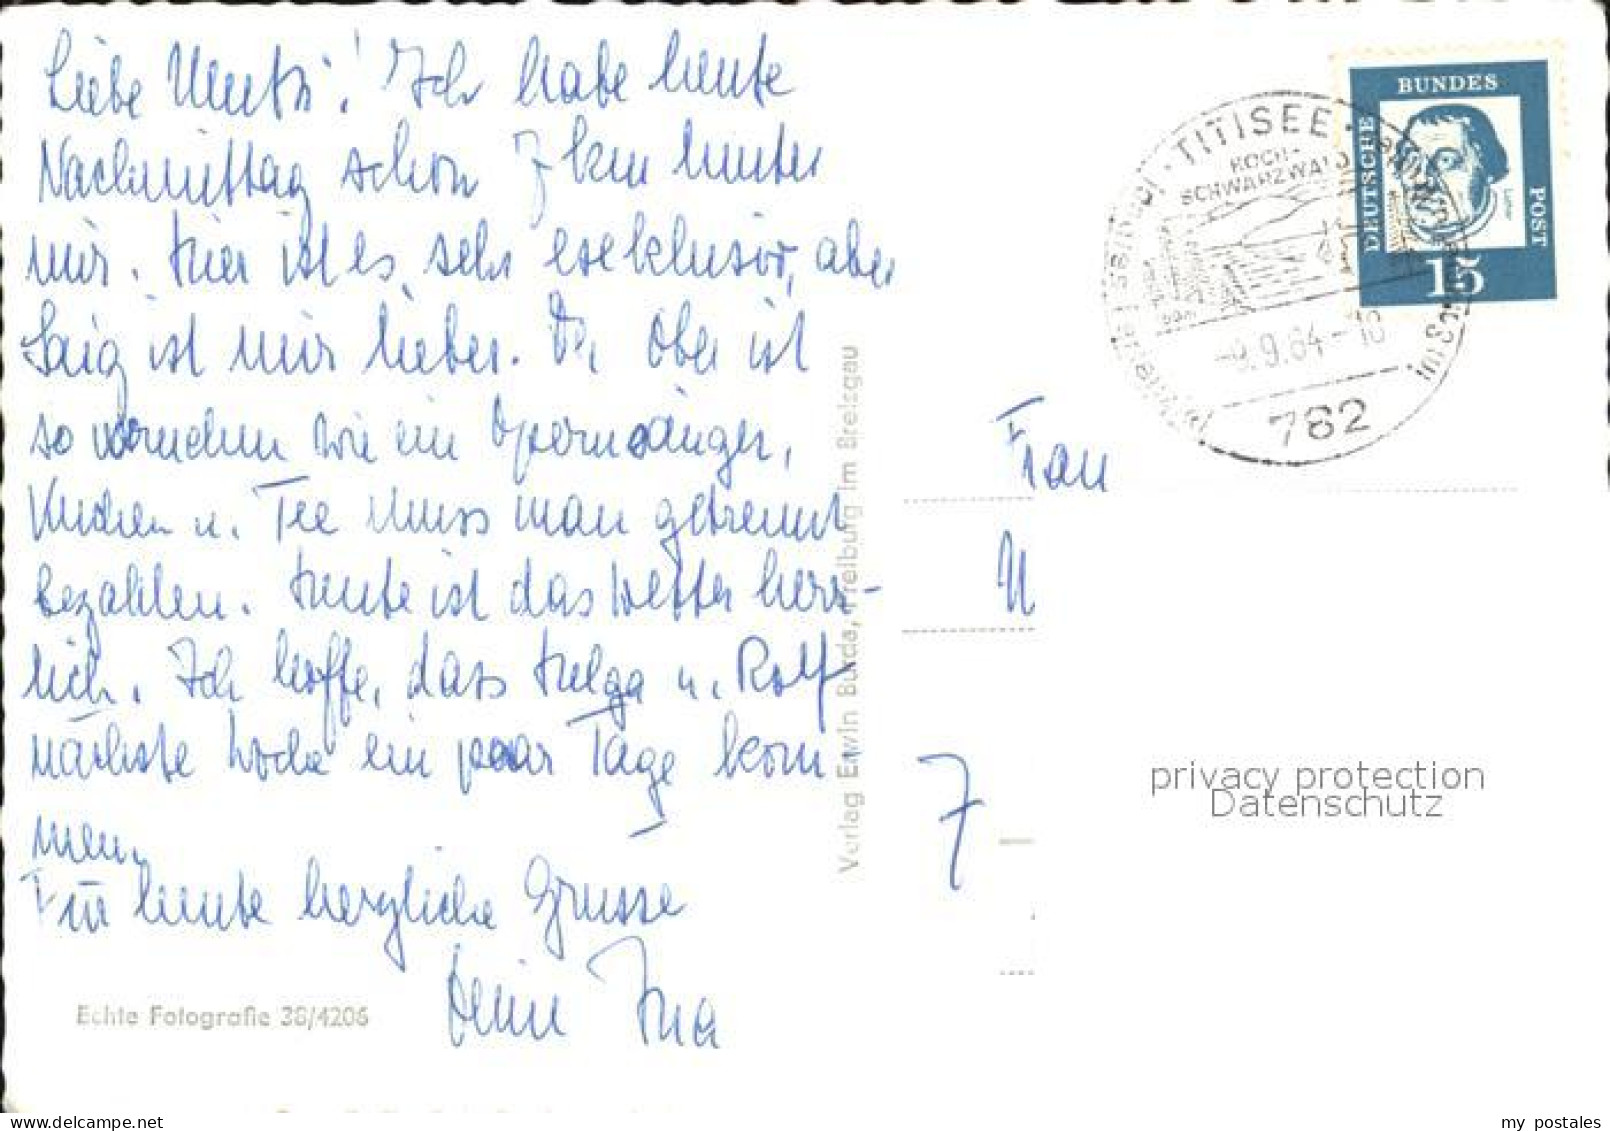 Liebe Mutti! Ich habe heute
Nachmittag schon 7 km hinter
mir. Hier ist es sehr exklusiv, aber
Saig ist mir lieber. Der Ober ist
so vornehm wie ein Opernsänger,
Kuchen u. Tee muss man getrennt
bezahlen. Heute ist das Wetter herr-
lich. Ich hoffe, dass Helga u. Rolf
nächste Woche ein paar Tage kom
men.
Für heute herzliche Grüsse
Deine Ina
Echte Fotografie 38/4206
Verlag Erwin Burda, Freiburg im Breisgau
TITISEE
HOCH-
SCHWARZWALD
-9.9.64-18
782
DEUTSCHE
BUNDES
POST
Luther
15
Frau
7
privacy protection
Datenschutz
my postales